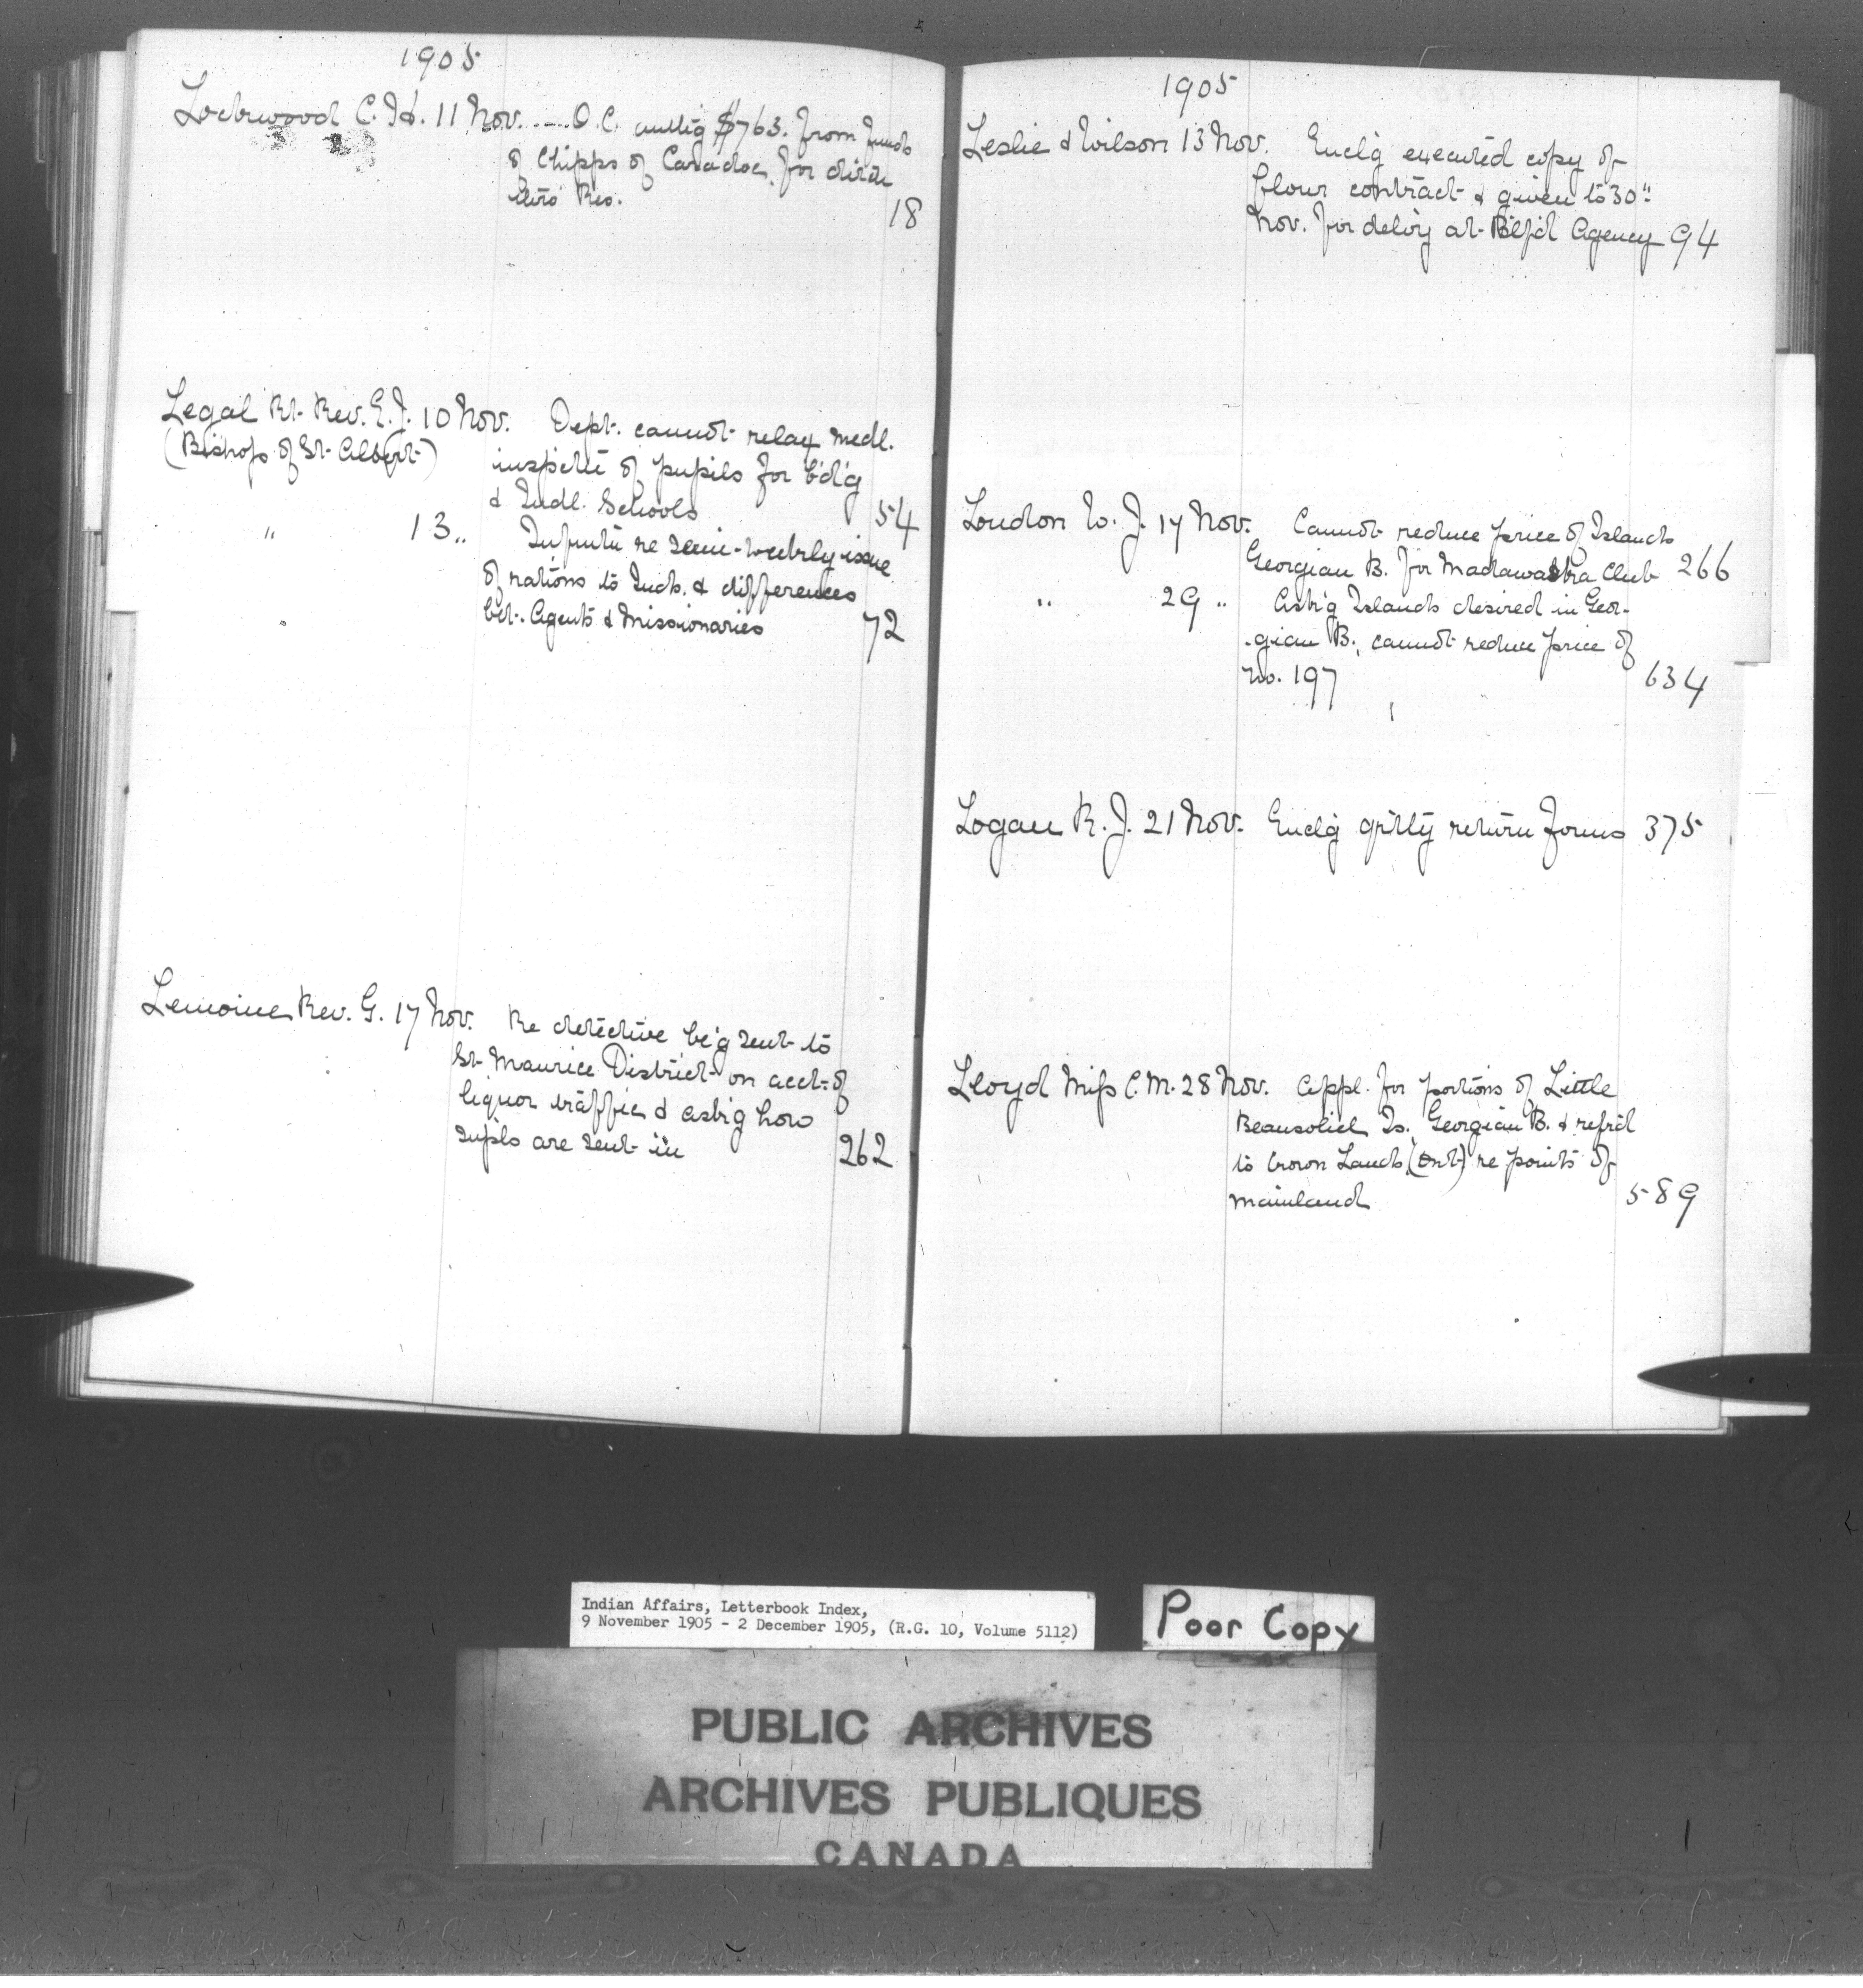 1905
Lockwood C. H. 11 Nov. .... O.C. authg $763. from funds
of Chipps of Caradoc, for
Res. 18
Legal Rt. Rev. E. J. 10 Nov. Dept. cannot relax medl.
(Bishop of St. Albert) inspectn of pupils for b'd'g
& Indl. Schools 54
" 13 " Infmtn re semi-weekly issue
of rations to Inds. & differences
bet. Agents & Missionaries 72
Lemoine Rev. G. 17 Nov. Re detective be'g sent to
St. Maurice District on acct. of
liquor traffic & askg how
supls are sent in 262
1905
Leslie & Wilson 13 Nov. Enclg executed copy of
flour contract & given to 30"
Nov. for delvy at Btlfd Agency 94
Loudon W. J. 17 Nov. Cannot reduce price of Islands
Georgian B. for Madawaska Club 266
" 29 " Askg Islands desired in Geor-
-gian B., cannot reduce price of
No. 197 634
Logan R. J. 21 Nov. Enclg qrtly return forms 375
Lloyd Miss C. M. 28 Nov. Appl. for portions of Little
Beausoliel Is. Georgian B. & refrd
to Crown Lands (Ont) re points of
mainland 589
Indian Affairs, Letterbook Index,
9 November 1905 - 2 December 1905, (R.G. 10, Volume 5112)
Poor Copy
PUBLIC ARCHIVES
ARCHIVES PUBLIQUES
CANADA